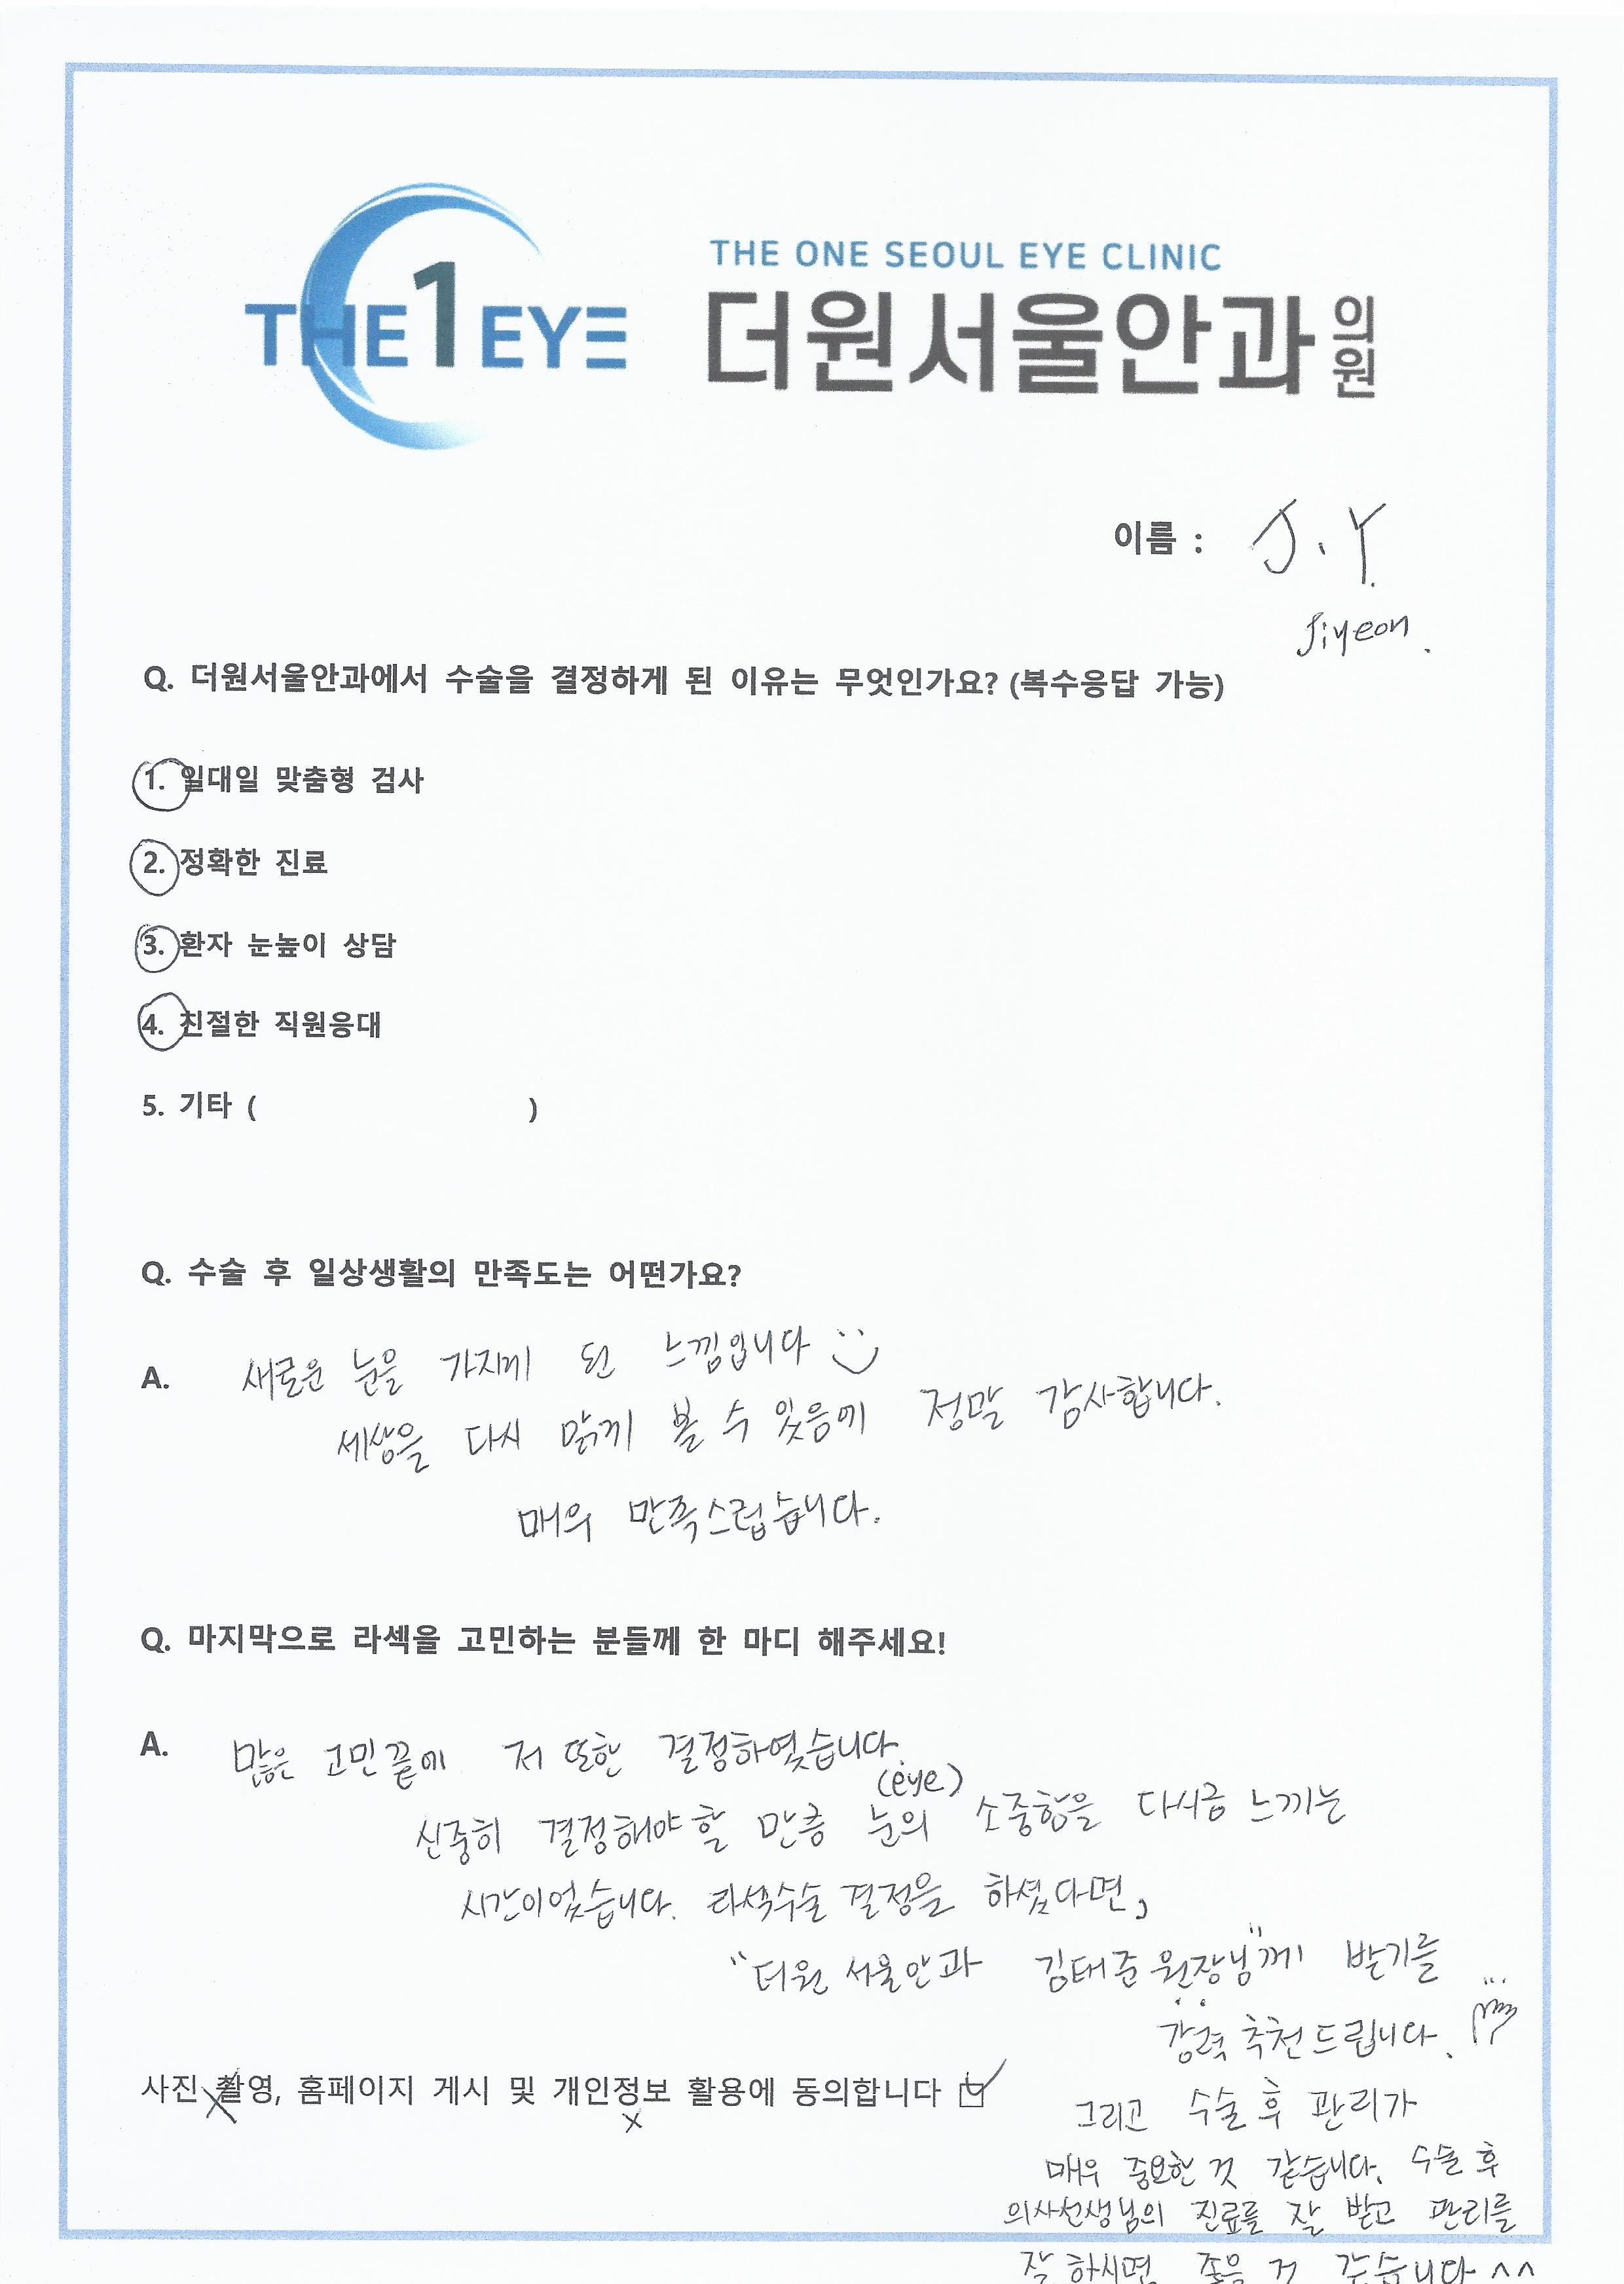 THE1EYE
THE ONE SEOUL EYE CLINIC
더원서울안과의원
이름 : J.Y.
Jiyeon.
Q. 더원서울안과에서 수술을 결정하게 된 이유는 무엇인가요? (복수응답 가능)
1. 일대일 맞춤형 검사
2. 정확한 진료
3. 환자 눈높이 상담
4. 친절한 직원응대
5. 기타 ( )
Q. 수술 후 일상생활의 만족도는 어떤가요?
A. 새로운 눈을 가지게 된 느낌입니다
세상을 다시 맑게 볼 수 있음에 정말 감사합니다.
매우 만족스럽습니다.
Q. 마지막으로 라섹을 고민하는 분들께 한 마디 해주세요!
A. 많은 고민끝에 저 또한 결정하였습니다.
(eye)
신중히 결정해야 할 만큼 눈의 소중함을 다시금 느끼는
시간이었습니다. 라섹수술 결정을 하셨다면,
"더원 서울안과 김태준 원장님"께 받기를
강력 추천드립니다.
사진 촬영, 홈페이지 게시 및 개인정보 활용에 동의합니다
그리고 수술 후 관리가
매우 중요한 것 같습니다. 수술 후
의사선생님의 진료를 잘 받고 관리를
잘 하시면 좋을 것 같습니다 ^^